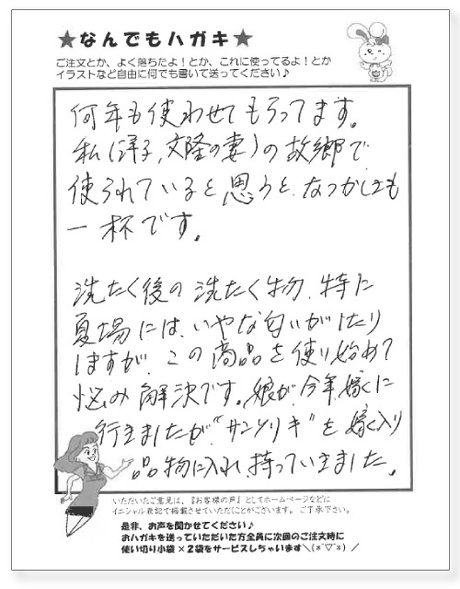 ★なんでもハガキ★
ご注文とか、よく落ちたよ！とか、これに使ってるよ！とか
イラストなど自由に何でも書いて送ってください♪
何年も使わせてもらってます。
私(洋子,文隆の妻)の故郷で
使られていると思うと、なつかしさも
一杯です。
洗たく後の洗たく物、特に
夏場には、いやな匂いがしたり
しますが、この商品を使い始めて
悩み解決です。娘が今年嫁に
行きましたが、“サンソリキ”を嫁入り
品物に入れ、持っていきました。
いただいたご意見は、『お客様の声』としてホームページなどに
イニシャル表記で掲載させていただくことがございます。ご了承下さい。
是非、お声を聞かせてください♪
おハガキを送っていただいた方全員に次回のご注文時に
使い切り小袋×2袋をサービスしちゃいます＼(*´▽`*)／